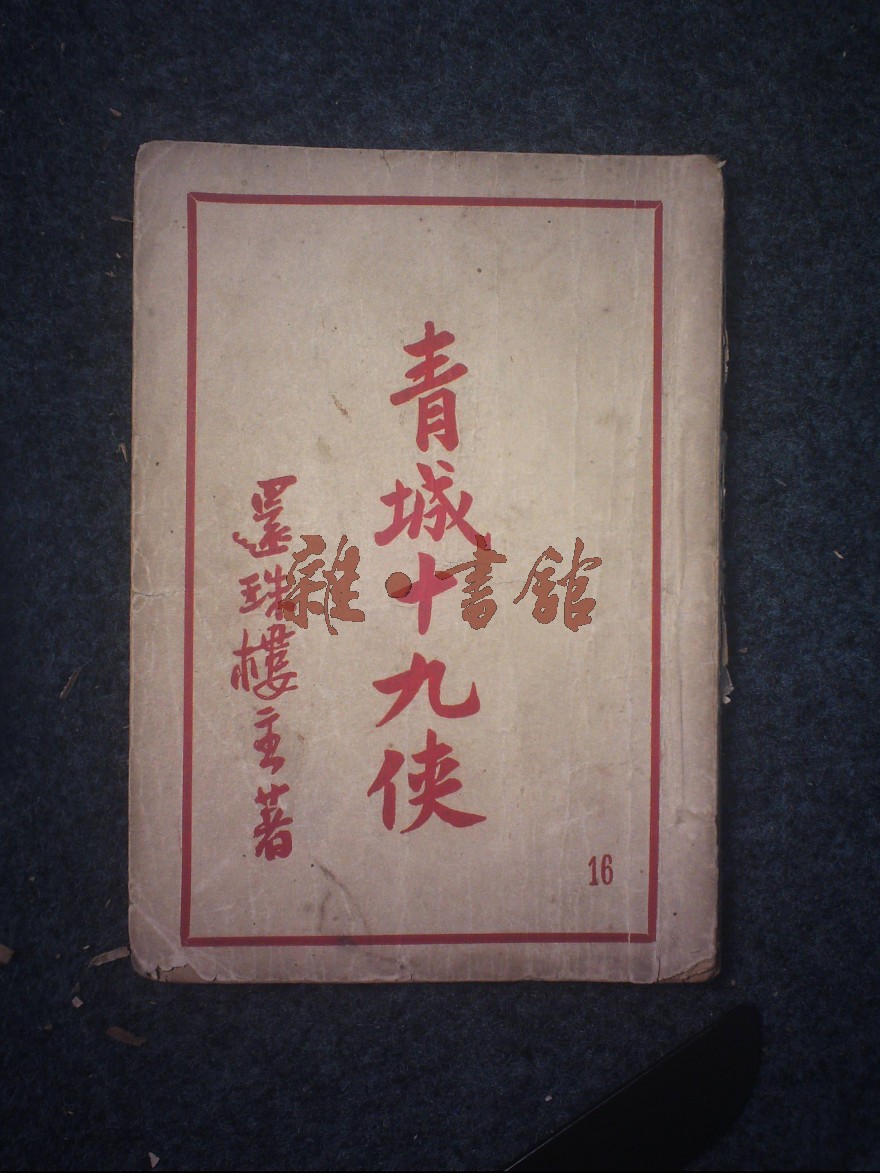 青城十九侠
還珠樓主著
16
雜·書舘